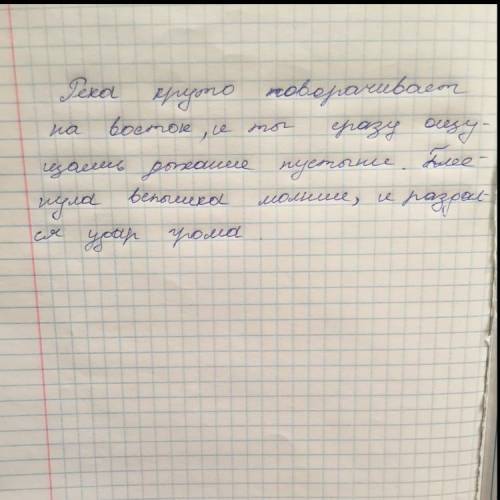 Река круто поворачивает
на восток, и ты сразу ощу-
щаешь дыхание пустыни. Блес-
нула вспышка молнии, и раздал-
ся удар грома